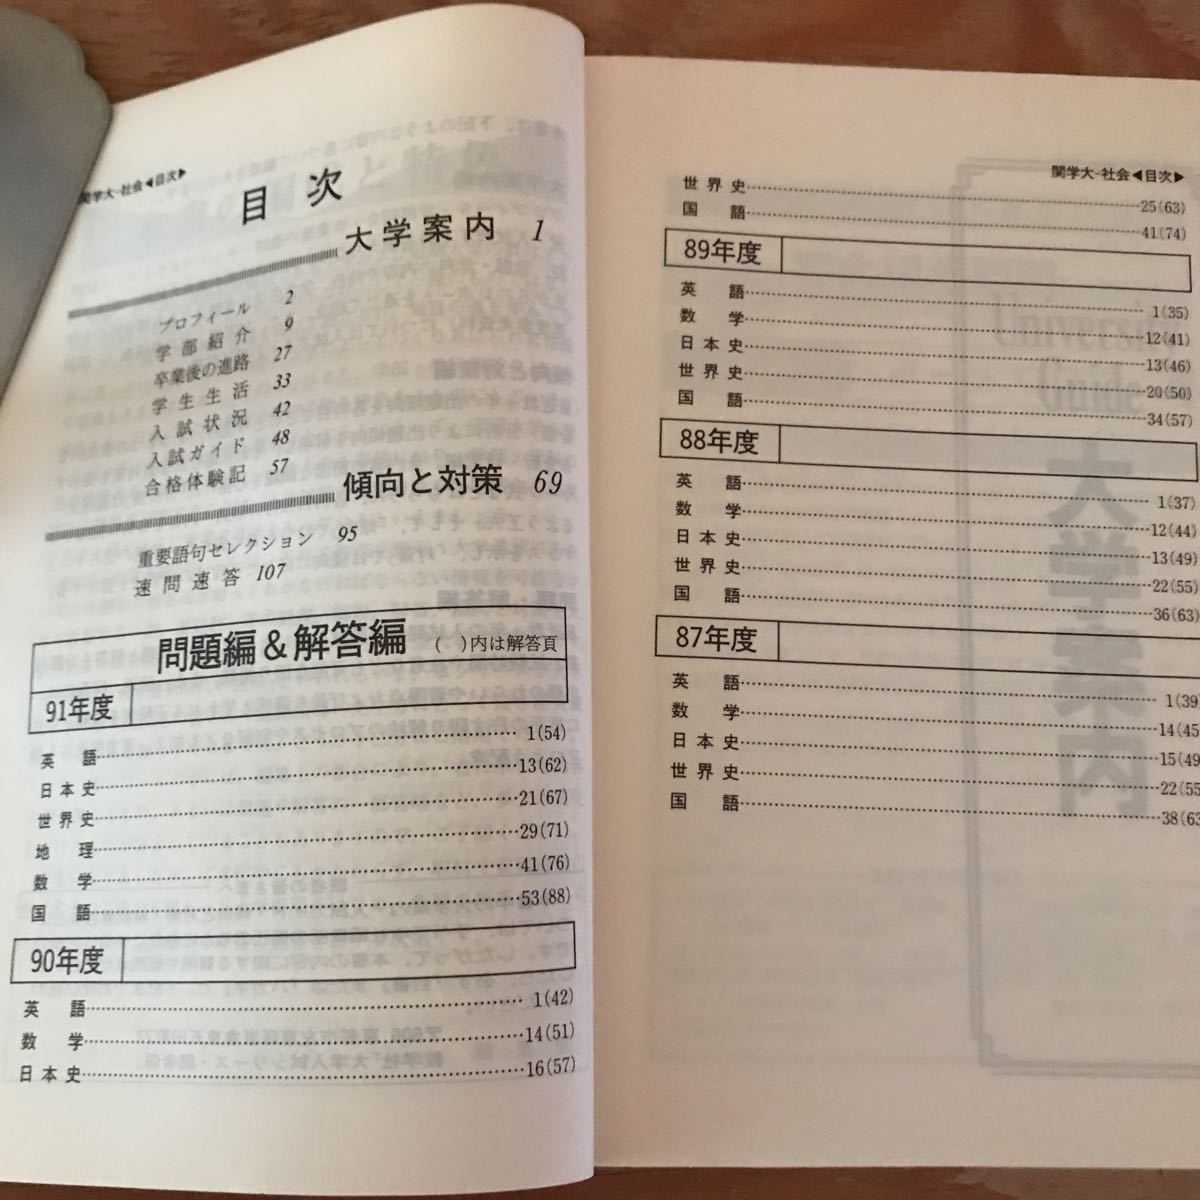 関学大-社会◀目次▶
目次
大学案内 1
プロフィール 2
学部紹介 9
卒業後の進路 27
学生生活 33
入試状況 42
入試ガイド 48
合格体験記 57
傾向と対策 69
重要語句セレクション 95
速問速答 107
問題編&解答編 ( )内は解答頁
91年度
英語 1(54)
日本史 13(62)
世界史 21(67)
地理 29(71)
数学 41(76)
国語 53(88)
90年度
英語 1(42)
数学 14(51)
日本史 16(57)
関学大-社会◀目次▶
世界史 25(63)
国語 41(74)
89年度
英語 1(35)
数学 12(41)
日本史 13(46)
世界史 20(50)
国語 34(57)
88年度
英語 1(37)
数学 12(44)
日本史 13(49)
世界史 22(55)
国語 36(63)
87年度
英語 1(39)
数学 14(45
日本史 15(49
世界史 22(55
国語 38(63